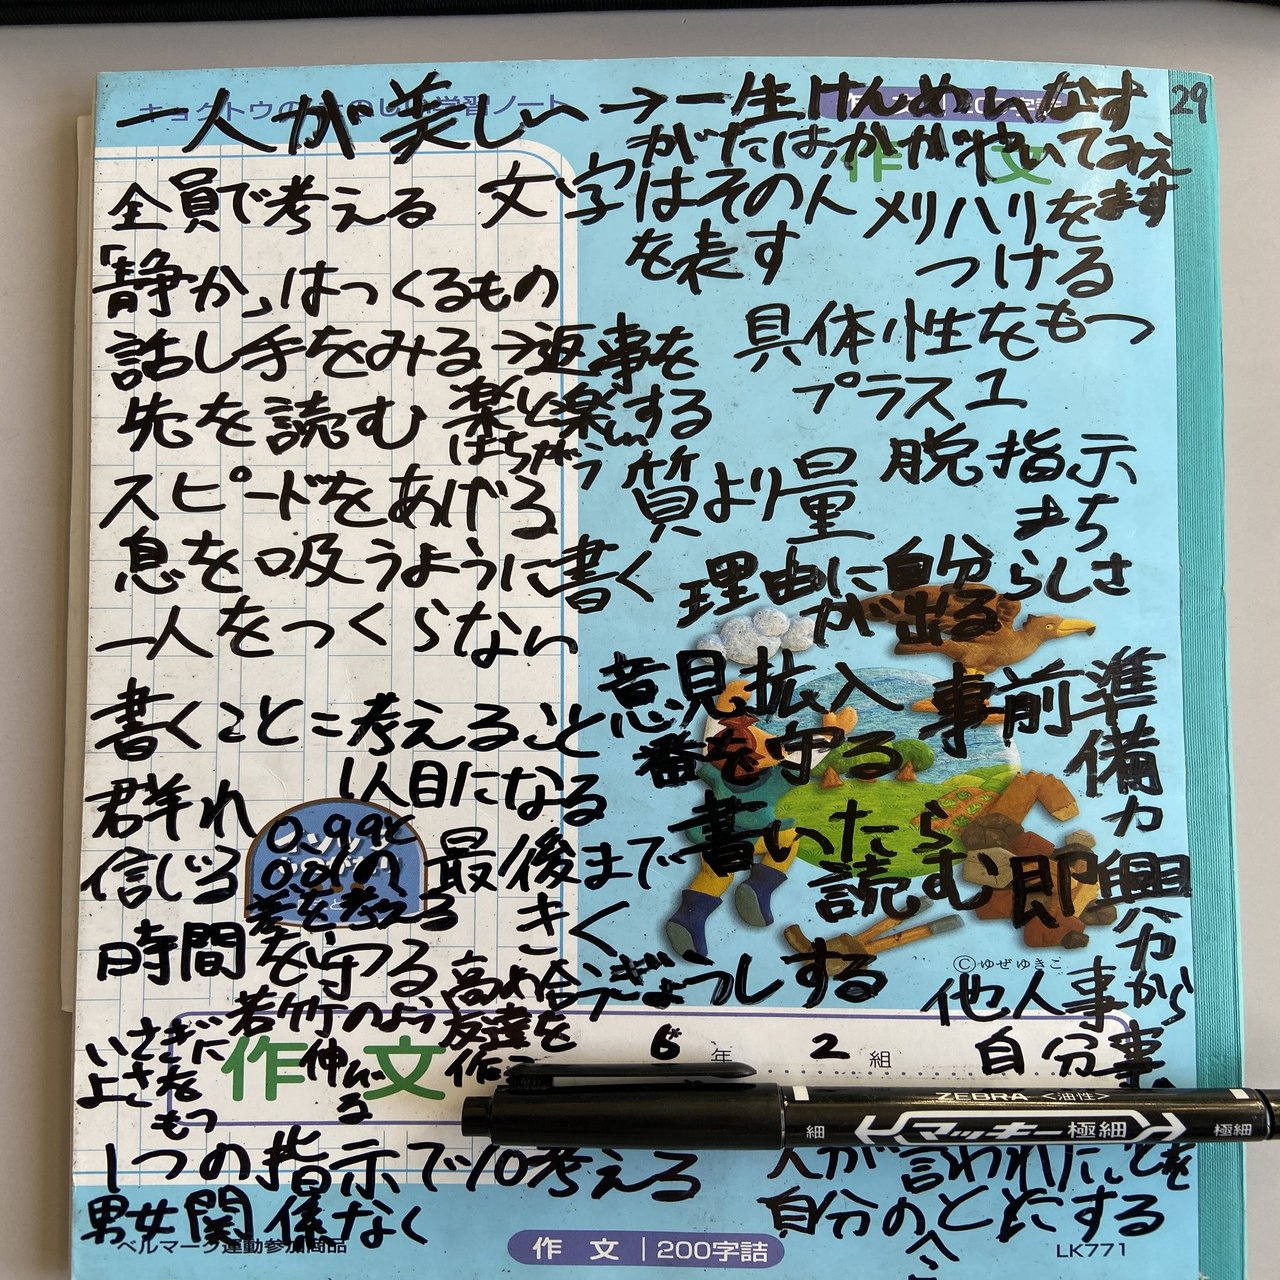 キョクトウの たのしい学習ノート
作文 200字詰
29
一人が美しい→一生けんめいなす
がたは、かがやいてみえ
ます
作文
全員で考える
文字はその人
を表す
メリハリを
つける
「静か」はつくるもの
具体性をもつ
話し手をみる→返事を
する
プラス1
先を読む
楽しいと楽
はちがう
脱指示
まち
スピードをあげる
質より量
息を吸うように書く
理由に自分らしさ
が出る
一人をつくらない
意見、拡入
事前準
備力
書くこと=考えること
番を守る
群れ
1人目になる
書いたら
読む
即興
力
信じる
0.99と
の
差を考える
最後まで
きく
時間を守る
高め合う
友達を
作る
ぎょうしする
若竹のよう
伸び
る
いさぎに
よさを
もつ
©ゆぜゆきこ
他人事から
自分事へ
作文
6年 2組
ZEBRA <油性>
細 マッキー極細 極細
1つの指示で10考える
人が言われたことを
自分のことにする
男女関係なく
ベルマーク運動参加商品
作文 200字詰
LK771